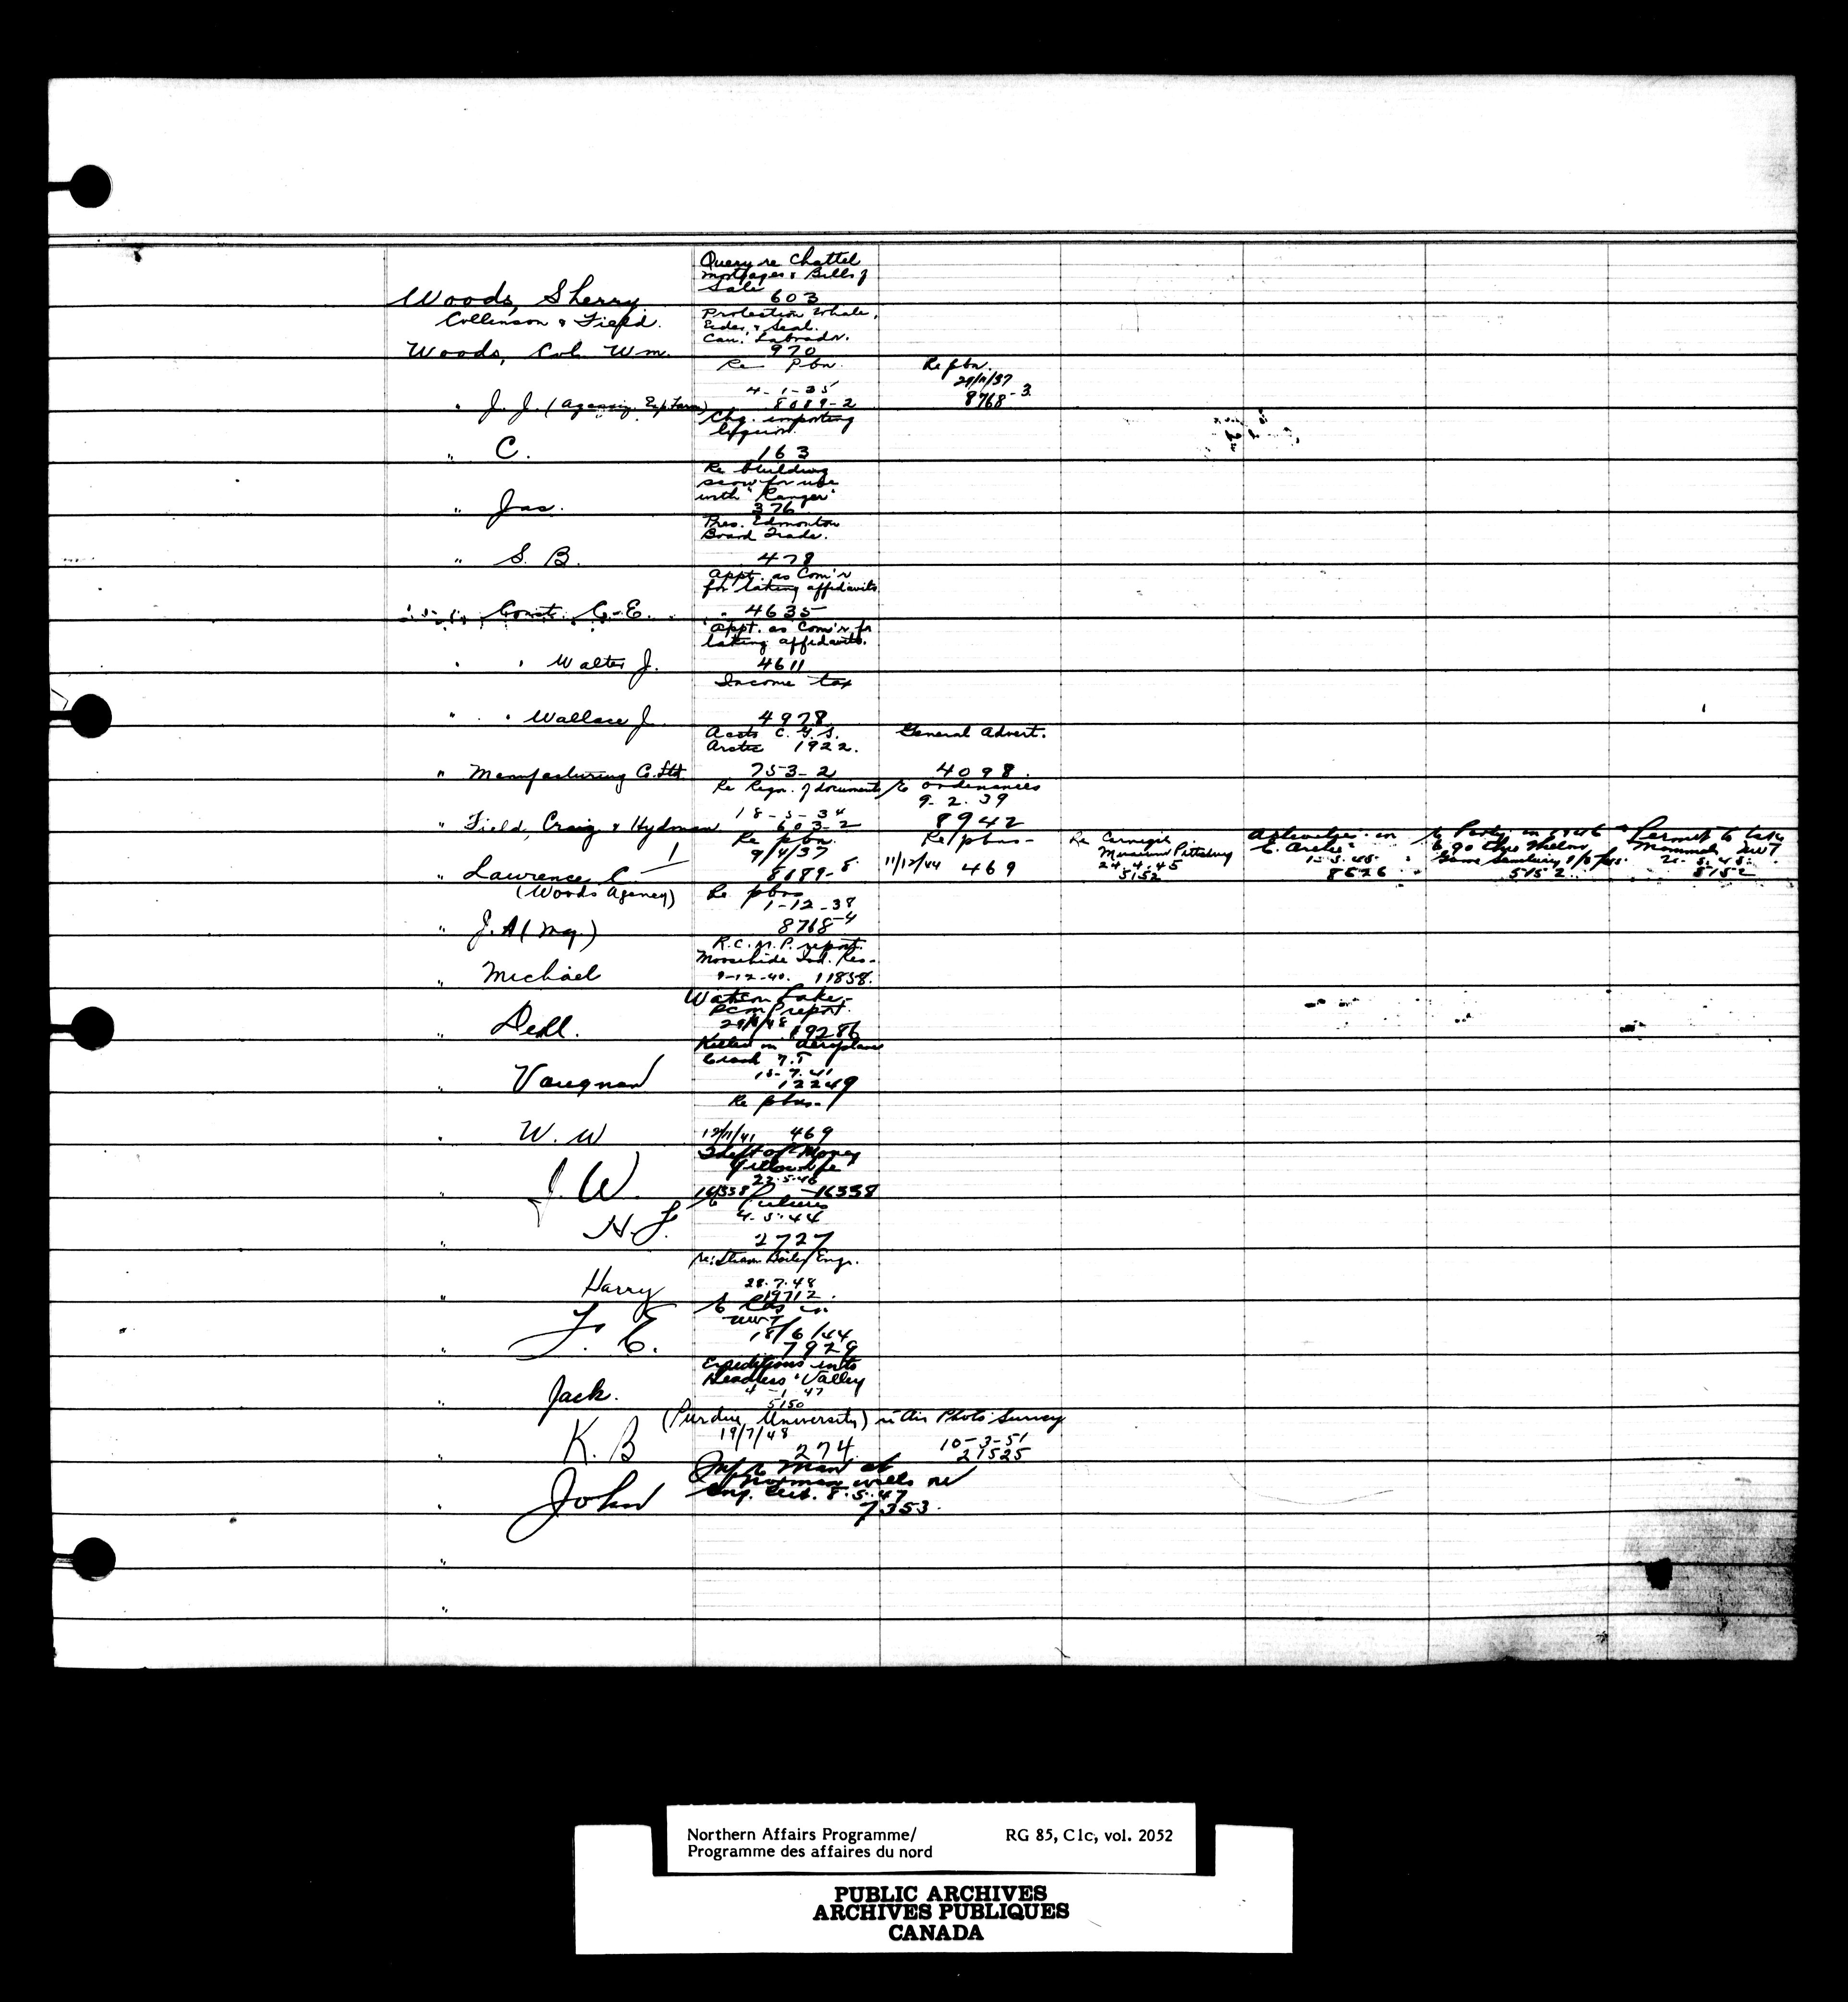 Query re Chattel
Mortgages & Bills of
Sale
Woods, Sherry 603
Collinson & Field.
Protection Whale,
Eider, & Seal.
Can. Labrador.
Woods, Col. Wm. 970
Re Pbn. Re pbn.
4-1-35 29/11/37
" J. J. (Agassiz Exp. Farm) 8089-2 8768-3
Chg. importing
liquor.
" C. 163
Re building
scow for use
with "Ranger"
" Jas. 376
Pres. Edmonton
Board Trade.
" S. B. 478
Appt. as Com'r
for taking affidavits
Const. G. E. 4635
Appt. as Com'r for
taking affidavits.
" " Walter J. 4611
Income tax
" " Wallace J. 4978
Accts C. G. S. General Advert.
Arctic 1922.
" Manufacturing Co. Ltd. 753-2 4098.
Re Regn. of documents Re Ordinances
18-5-34 9-2-39
" Field, Craig & Hydman 603-2 8942
Re pbn. Re pbns- Re Carnegie
Museum Pittsburg
9/4/37 24.4.45
" Lawrence C. 8189-8 11/12/44 469 5152
Activities in
E. Arctic
1-5-45
8526
Party in 1946
Game Sanctuary
5152
Permit to take
Mammals NWT
21-5-45
5152
(Woods Agency) Re pbns
1-12-38
" J. A (Mg.) 8768-4
R.C.M.P. report
Moosehide Ind. Res-
" Michael 9-12-40. 11858.
Watson Lake-
RCM P report.
" Dell. 19286
Killed in Aeroplane
Crash
15-7-41
" Vaughan 12249
Re pbns-
" W. W 12/11/41 469
Theft of Money
Yellowknife
22-5-46
" J. W. 16338 - 16338
4-5-44
" H. J. 2727
re: Steam Boiler Engr.
28-7-48
" Harry 19712.
NWT
18/6/44
" F. E. 7929
Expeditions into
Headless Valley
4-1-47
" Jack. 5150
(Purdue University) re Air Photo Survey
19/7/48 10-3-51
" K. B 274 21525
Man at
Norman Wells re
8.5.47
" John 7353.
"
"
Northern Affairs Programme/ RG 85, C1c, vol. 2052
Programme des affaires du nord
PUBLIC ARCHIVES
ARCHIVES PUBLIQUES
CANADA